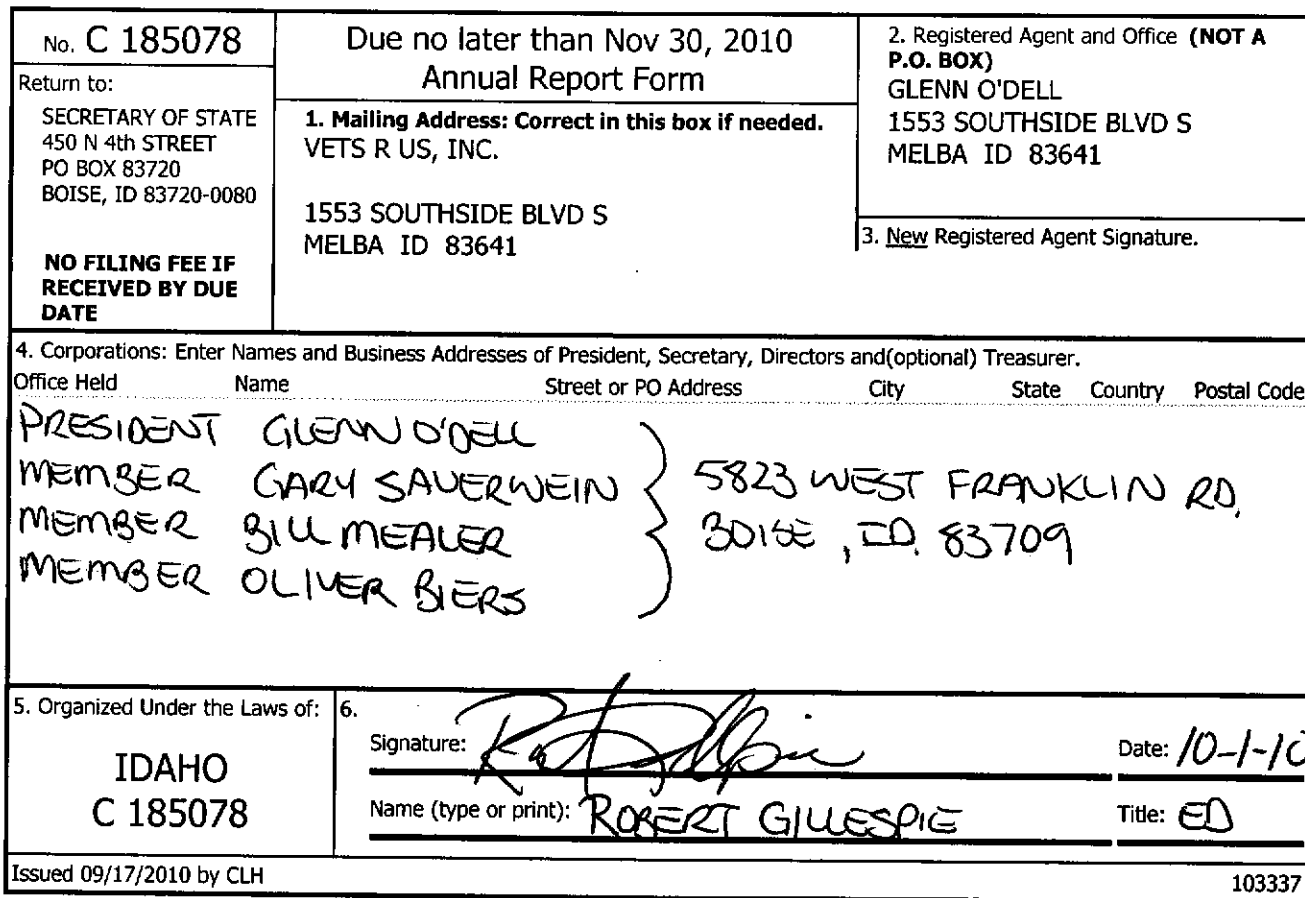 No. C 185078
Return to:
SECRETARY OF STATE
450 N 4th STREET
PO BOX 83720
BOISE, ID 83720-0080
NO FILING FEE IF
RECEIVED BY DUE
DATE
Due no later than Nov 30, 2010
Annual Report Form
1. Mailing Address: Correct in this box if needed.
VETS R US, INC.
1553 SOUTHSIDE BLVD S
MELBA ID 83641
2. Registered Agent and Office (NOT A
P.O. BOX)
GLENN O'DELL
1553 SOUTHSIDE BLVD S
MELBA ID 83641
3. New Registered Agent Signature.
4. Corporations: Enter Names and Business Addresses of President, Secretary, Directors and(optional) Treasurer.
Office Held Name Street or PO Address City State Country Postal Code
PRESIDENT GLENN O'DELL
MEMBER GARY SAUERWEIN
MEMBER BILL MEALER
MEMBER OLIVER BIERS
5823 WEST FRANKLIN RD.
BOISE, ID. 83709
5. Organized Under the Laws of:
IDAHO
C 185078
6.
Signature:
Date: 10-1-10
Name (type or print): ROBERT GILLESPIE
Title: ED
Issued 09/17/2010 by CLH
103337